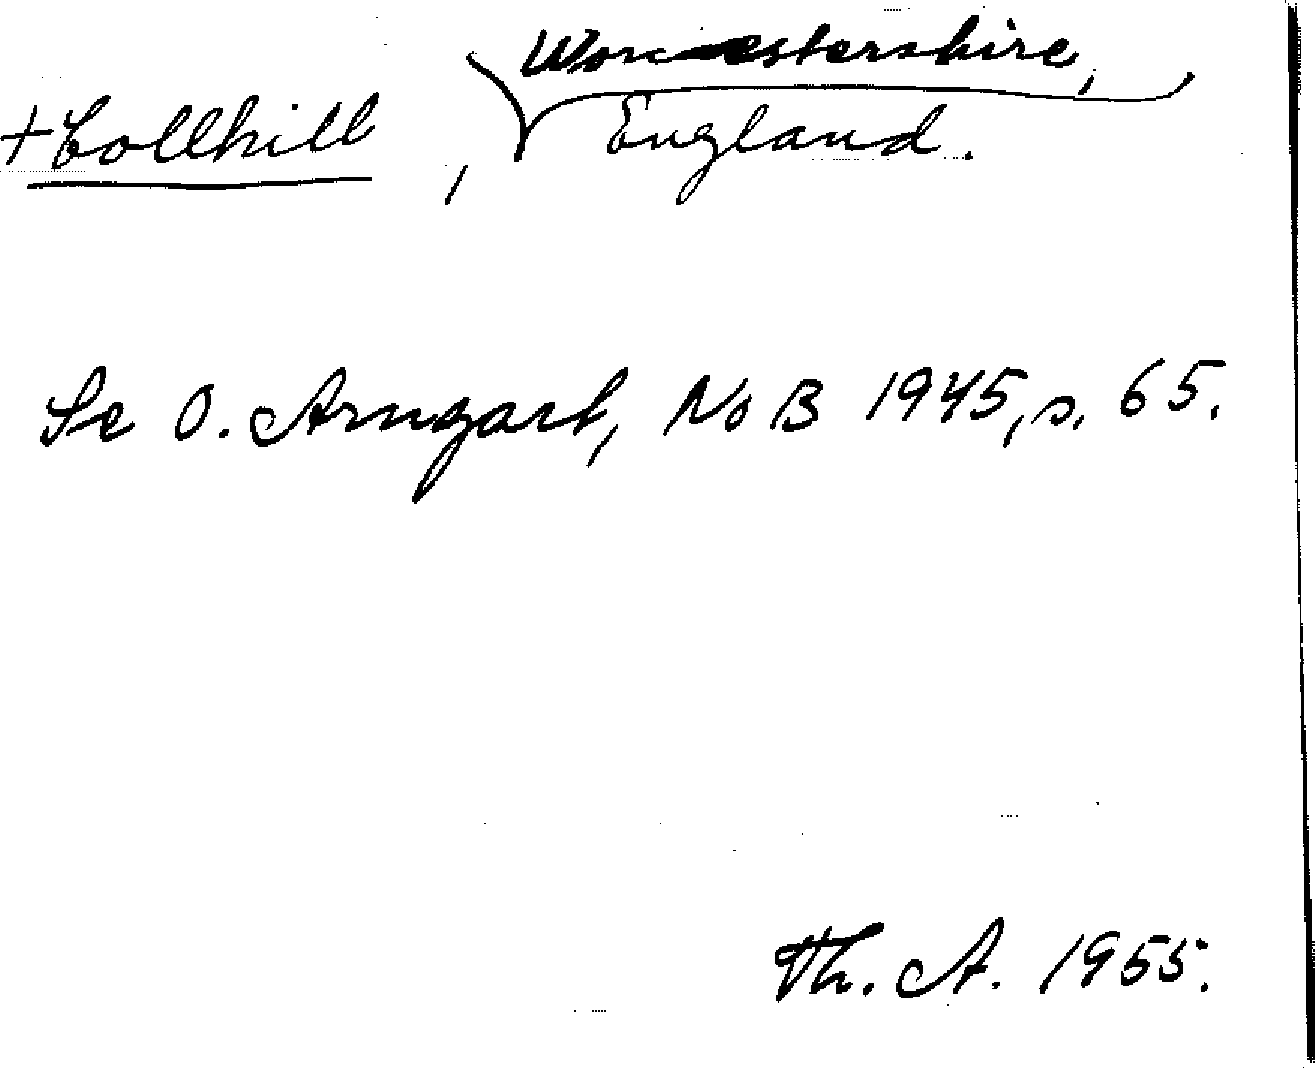 +Collhill, Worcestershire,
England.
Se O. Arngart, NoB 1945, s. 65.
Th. A. 1955.